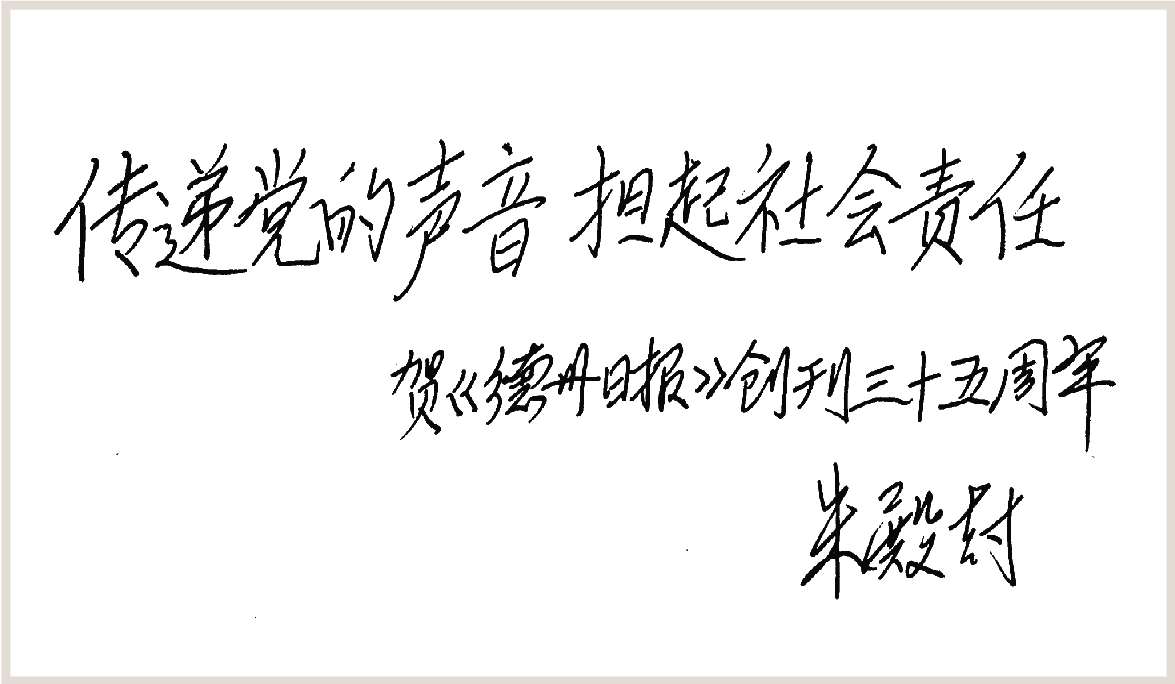 传递党的声音 担起社会责任
贺《德州日报》创刊三十五周年
朱殿封